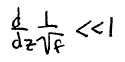 d/dz 1/√f << 1